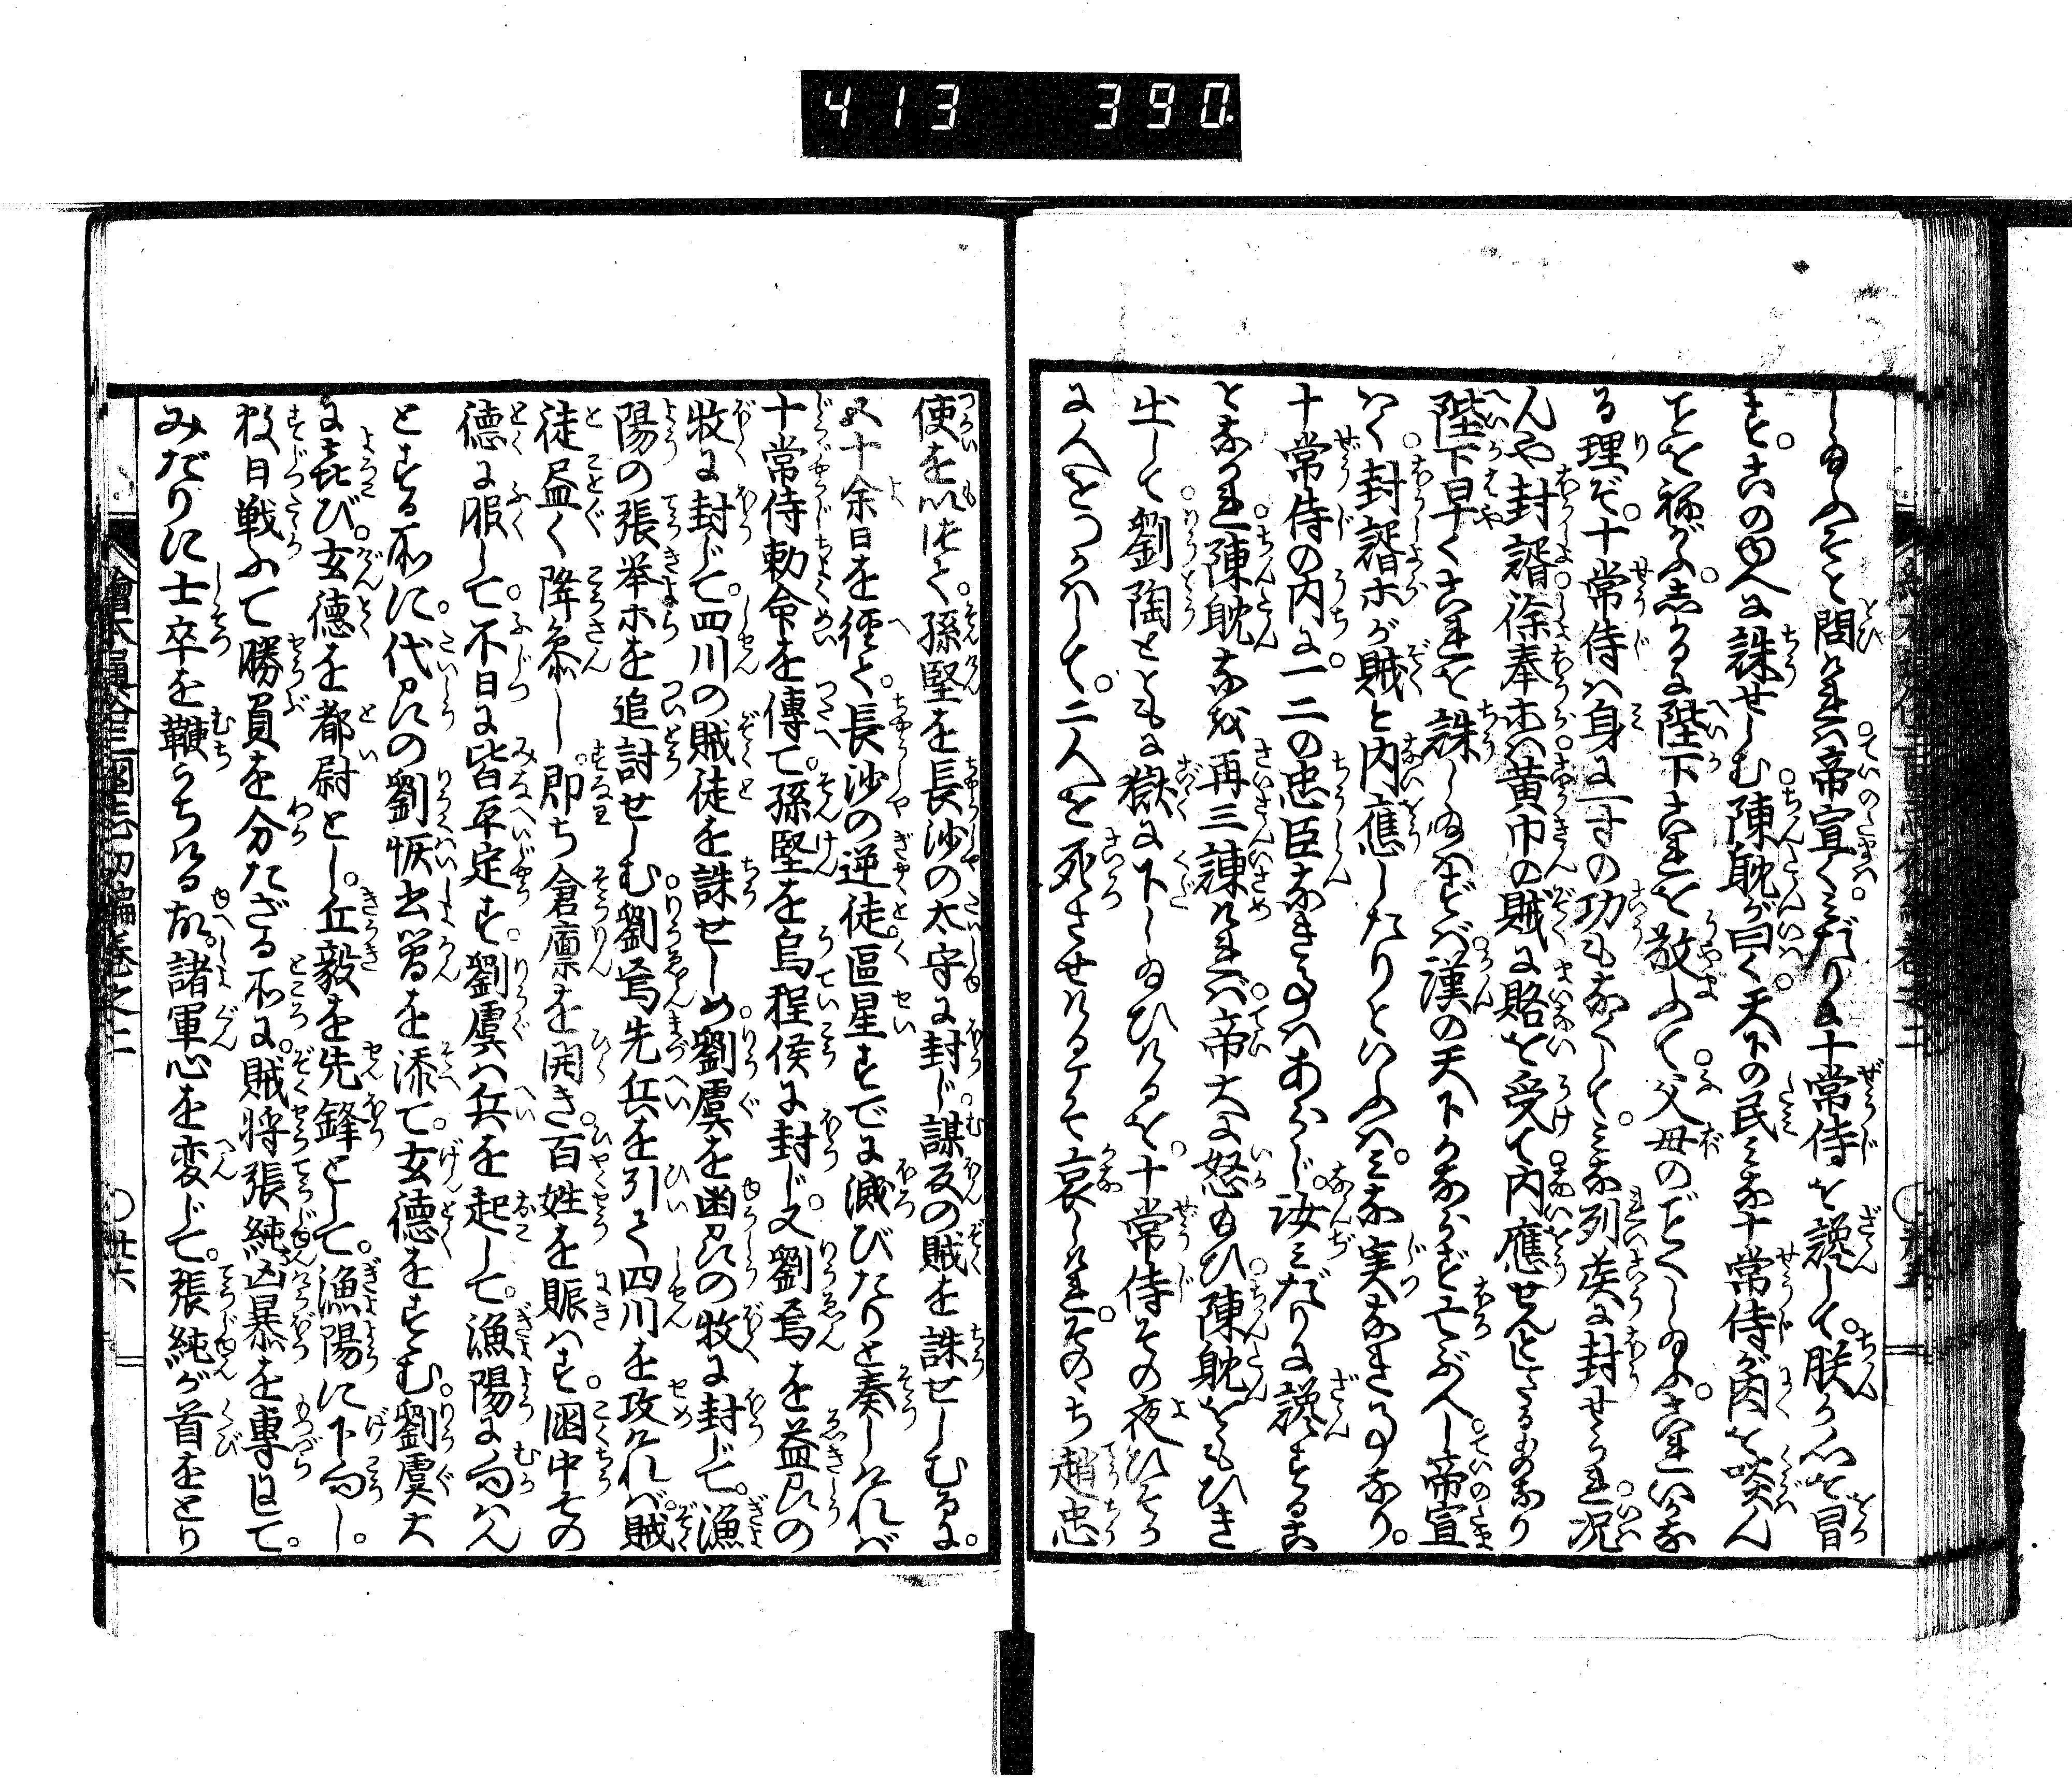 413 390
しめんやと問ければ。帝宣く。みだりに十常侍を讒して。朕が心を冒
す。この故に誅せしむ。陳耽が曰く。天下の民みな十常侍が肉を啖ん
ことを稱がふ。志かるに陛下これを敬ふて。父母のごとくし給ふ。これいかな
る理ぞ。十常侍は身に一寸の功もなくして。みな列侯に封せられ。况
んや封諝。徐奉ホは。黄巾の賊に賂を受て。内應せんとせるものなり
陛下早くこれを誅し給はずんば。漢の天下かならず亡ぶべし。帝宣
はく。封諝ホが賊と内應したりといふは。みな実なき事なり。
十常侍の内に。一二の忠臣なき事はあらじ。汝みだりに讒するこ
となかれ。陳耽なほ再三諫ければ。帝大に怒給ひ。陳耽をもひき
出して。劉陶とともに獄に下し給ひけるを。十常侍その夜ひそか
に人をつかはして。二人を死させけるこそ哀しけれ。そのゝち趙忠
使を以せて。孫堅を長沙の太守に封じ。謀反の賊を誅せしむるに。
又十余日を經て。長沙の逆徒區星すでに滅びたりと奏しければ
十常侍勅命を傳て。孫堅を烏程侯に封じ。又劉焉を益州の
牧に封じて。四川の賊徒を誅せしめ。劉虞を幽州の牧に封じて。漁
陽の張挙ホを追討せしむ。劉焉先兵を引て四川を攻ければ。賊
徒盡く降参し。即ち倉廪を開き。百姓を賑はす。国中その
德に服して。不日に皆平定す。劉虞は兵を起して。漁陽に向はん
とする所に。代州の劉恢書簡を添て。玄德をすゝむ。劉虞大
に喜び。玄德を都尉とし。丘毅を先鋒として。漁陽に下向し。
数日戦ふて勝負を分たざる所に。賊将張純凶暴を專にして。
みだりに士卒を鞭うちける故。諸軍心を変じて。張純が首をとり
繪本通俗三國志初編巻之二 〇廿六